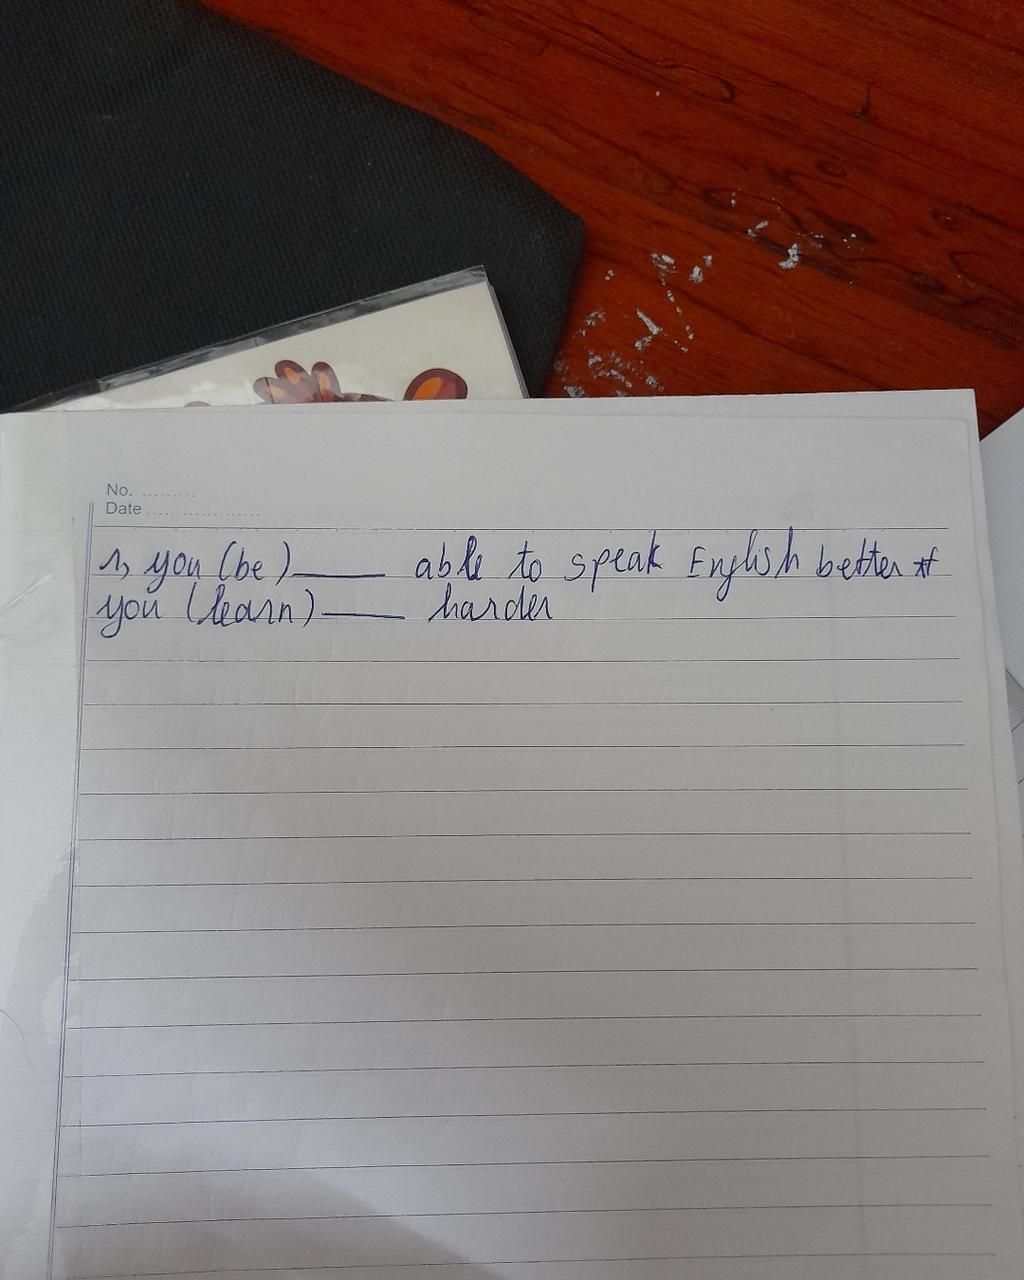 No. .........
Date ...................
1, you (be)_____ able to speak English better if
you (learn)_____ harder